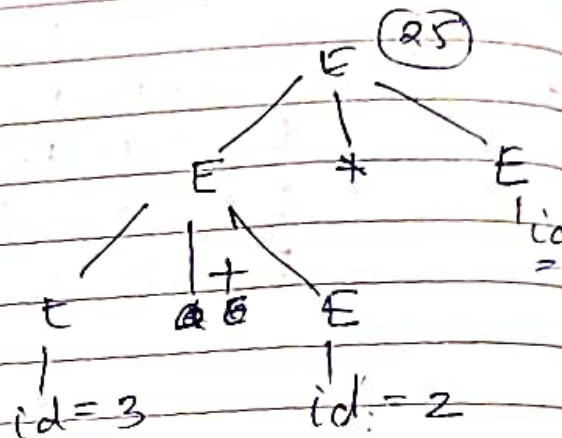 E 25
E * E
id
=
+
E E
id = 3 id = 2